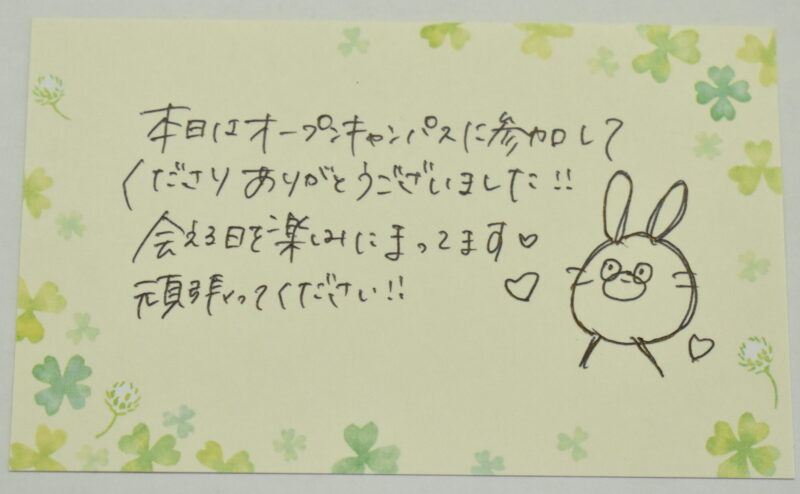 本日はオープンキャンパスに参加して
くださりありがとうございました!!
会える日を楽しみにまってます♡
頑張ってください!!